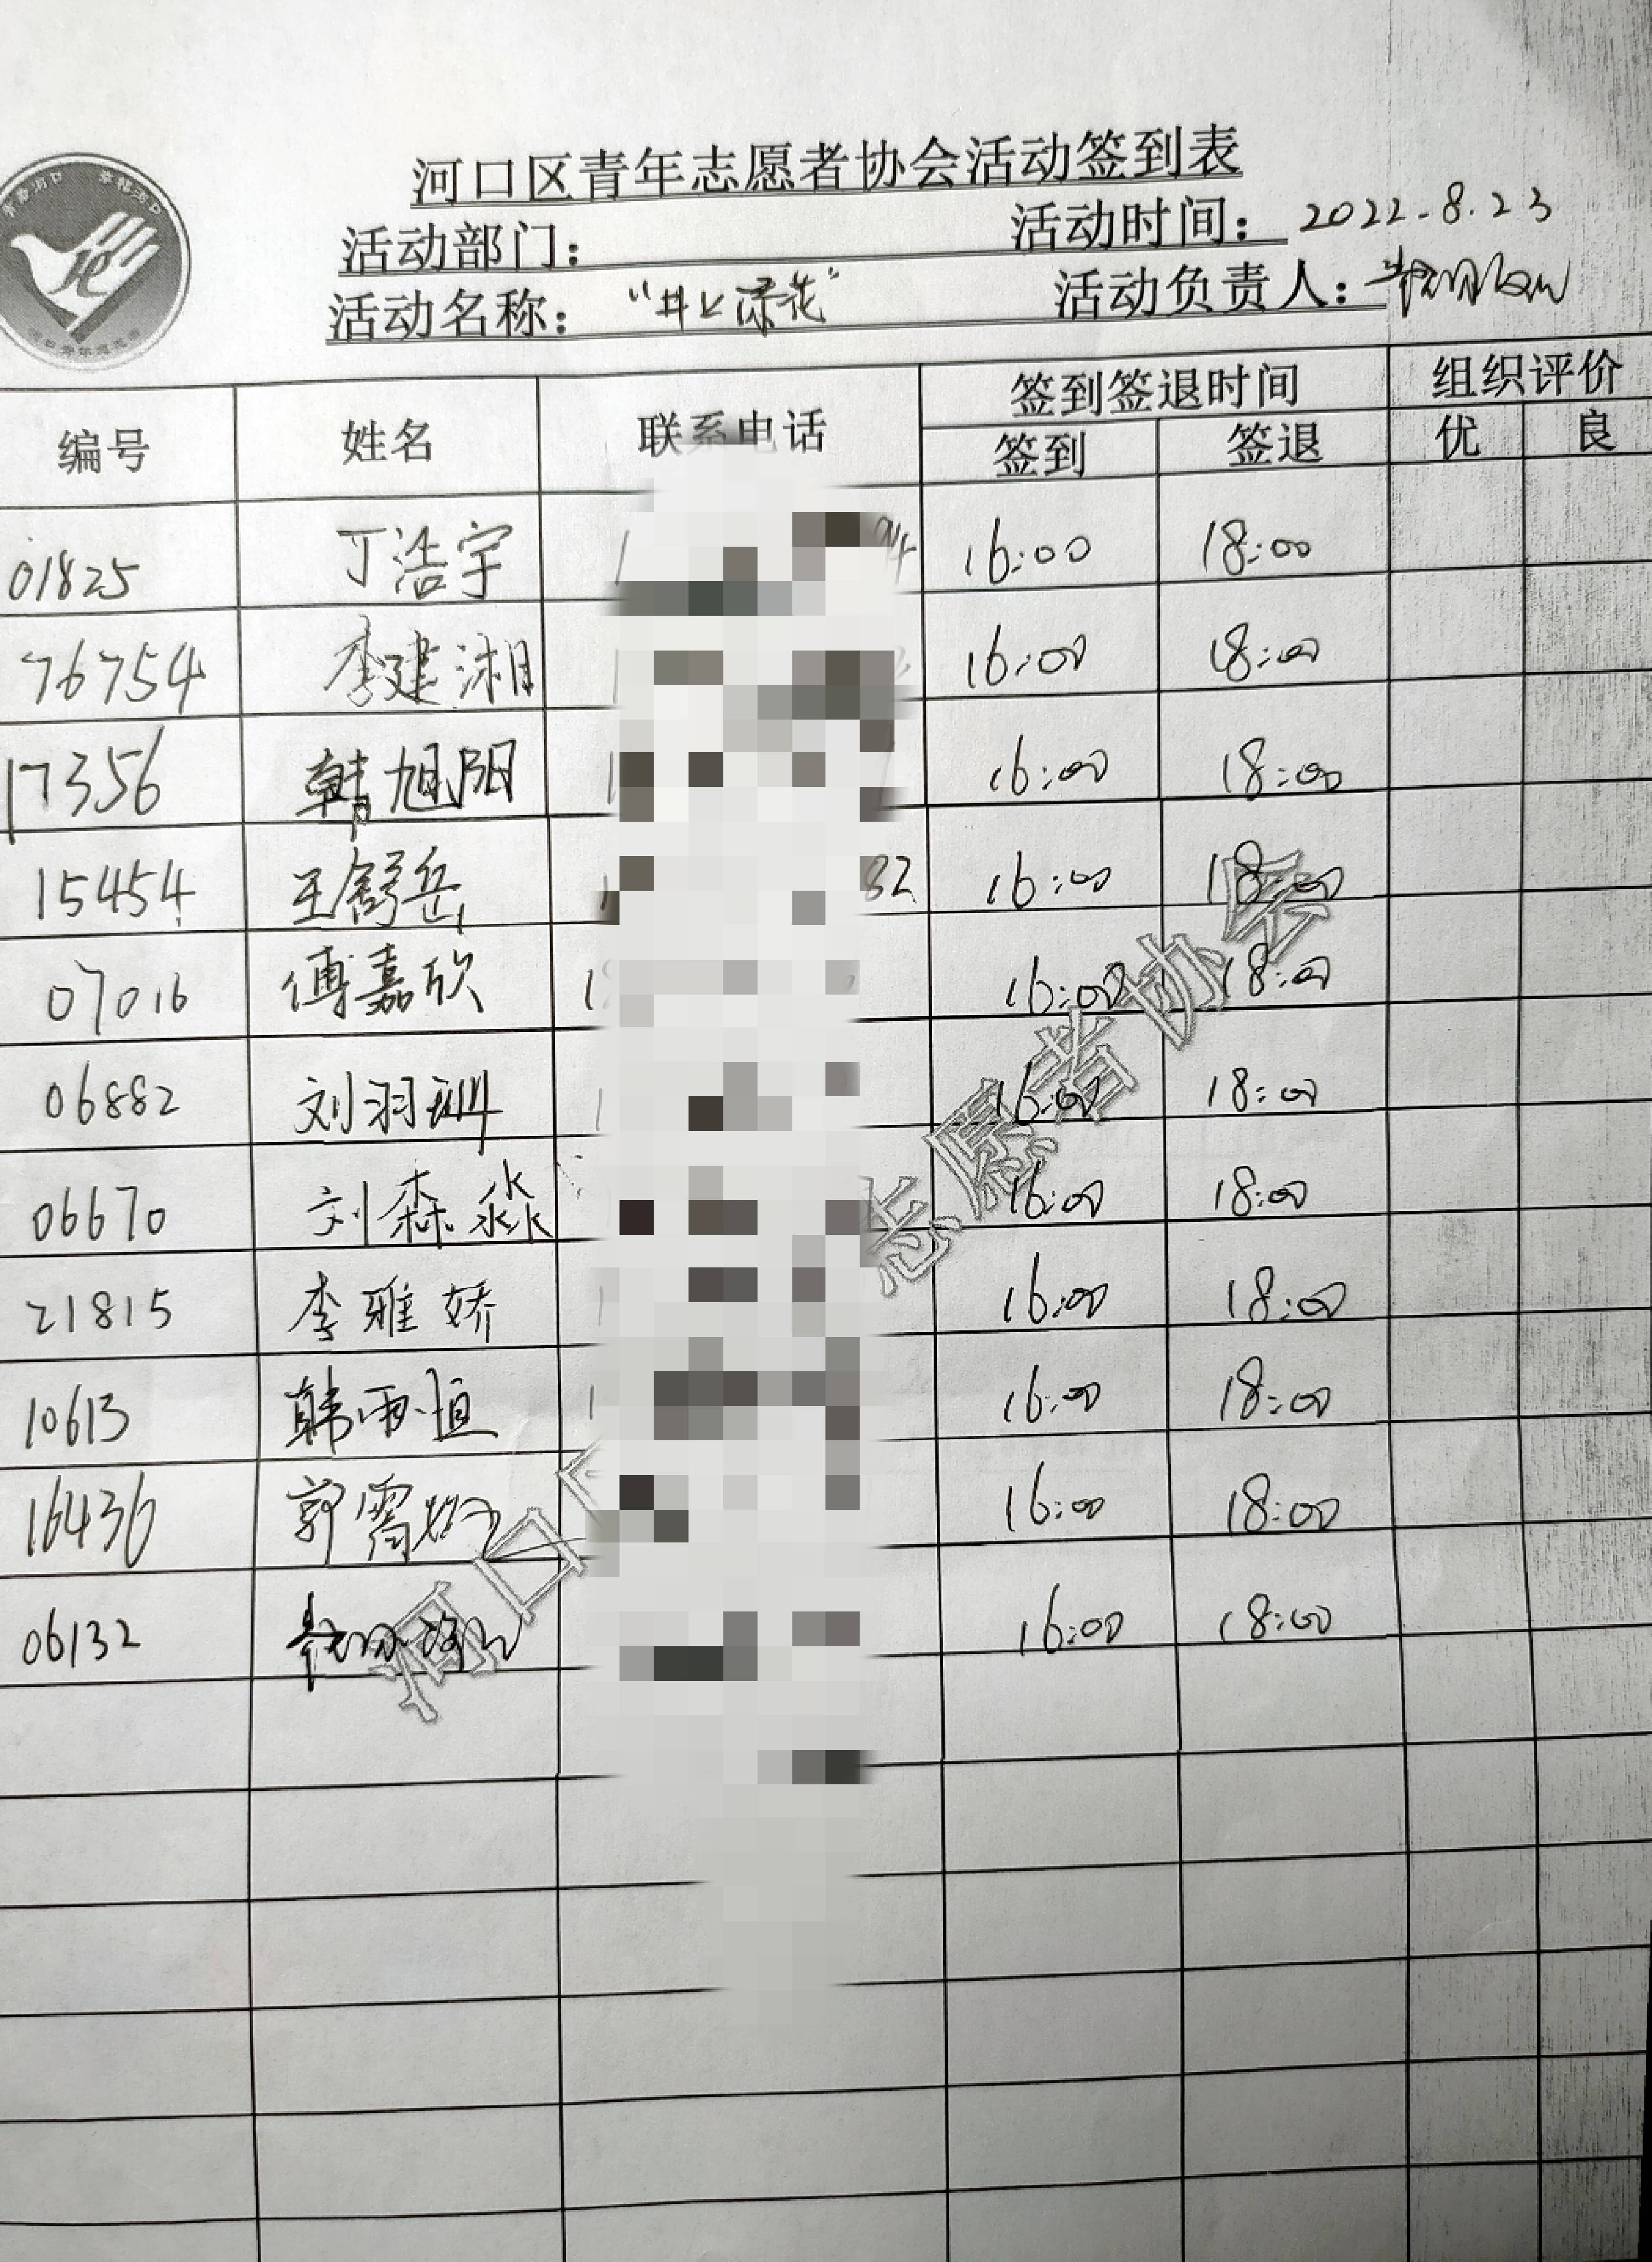 河口区青年志愿者协会活动签到表
活动部门： 活动时间：2022.8.23
活动名称： 活动负责人：
编号 姓名 联系电话 签到签退时间 组织评价
签到 签退 优 良
01825 丁浩宇 16:00 18:00
76754 李建湘 16:00 18:00
17356 韩旭阳 16:00 18:00
15454 王舒岳 82 16:00 18:00
07016 傅嘉欣 16:00 18:00
06882 刘羽玔 16:00 18:00
06670 刘森淼 16:00 18:00
21815 李雅娇 16:00 18:00
10613 韩雨恒 16:00 18:00
16436 郭霄 16:00 18:00
06132 16:00 18:00
河口 志愿者协会